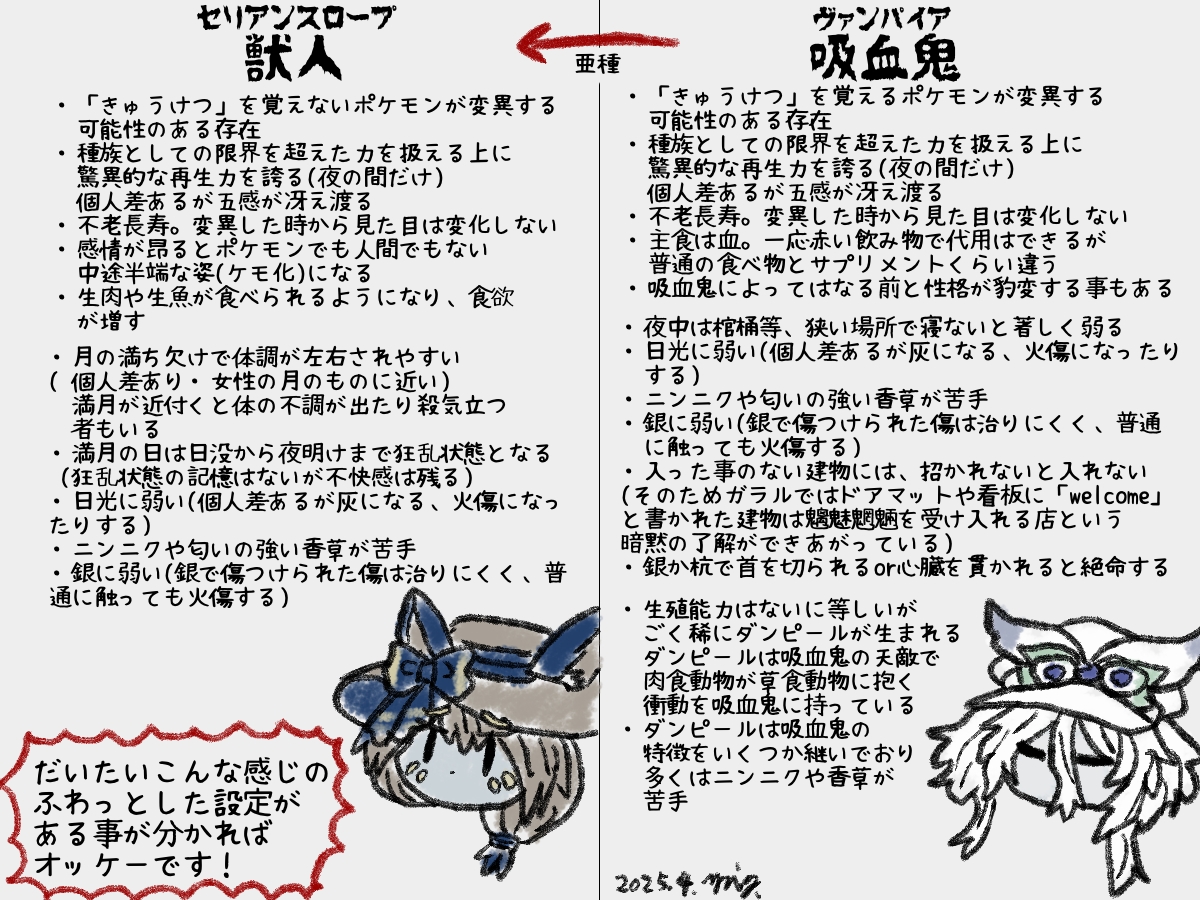 セリアンスロープ
獣人
・「きゅうけつ」を覚えないポケモンが変異する
可能性のある存在
・種族としての限界を超えた力を扱える上に
驚異的な再生力を誇る(夜の間だけ)
個人差あるが五感が冴え渡る
・不老長寿。変異した時から見た目は変化しない
・感情が昂るとポケモンでも人間でもない
中途半端な姿(ケモ化)になる
・生肉や生魚が食べられるようになり、食欲
が増す
・月の満ち欠けで体調が左右されやすい
( 個人差あり・女性の月のものに近い)
満月が近付くと体の不調が出たり殺気立つ
者もいる
・満月の日は日没から夜明けまで狂乱状態となる
(狂乱状態の記憶はないが不快感は残る)
・日光に弱い(個人差あるが灰になる、火傷になっ
たりする)
・ニンニクや匂いの強い香草が苦手
・銀に弱い(銀で傷つけられた傷は治りにくく、普
通に触っても火傷する)
だいたいこんな感じの
ふわっとした設定が
ある事が分かれば
オッケーです!
亜種
ヴァンパイア
吸血鬼
・「きゅうけつ」を覚えるポケモンが変異する
可能性のある存在
・種族としての限界を超えた力を扱える上に
驚異的な再生力を誇る(夜の間だけ)
個人差あるが五感が冴え渡る
・不老長寿。変異した時から見た目は変化しない
・主食は血。一応赤い飲み物で代用はできるが
普通の食べ物とサプリメントくらい違う
・吸血鬼によってはなる前と性格が豹変する事もある
・夜中は棺桶等、狭い場所で寝ないと著しく弱る
・日光に弱い(個人差あるが灰になる、火傷になったり
する)
・ニンニクや匂いの強い香草が苦手
・銀に弱い(銀で傷つけられた傷は治りにくく、普通
に触っても火傷する)
・入った事のない建物には、招かれないと入れない
(そのためガラルではドアマットや看板に「welcome」
と書かれた建物は魑魅魍魎を受け入れる店という
暗黙の了解ができあがっている)
・銀か杭で首を切られるor心臓を貫かれると絶命する
・生殖能力はないに等しいが
ごく稀にダンピールが生まれる
ダンピールは吸血鬼の天敵で
肉食動物が草食動物に抱く
衝動を吸血鬼に持っている
・ダンピールは吸血鬼の
特徴をいくつか継いでおり
多くはニンニクや香草が
苦手
2025.4.